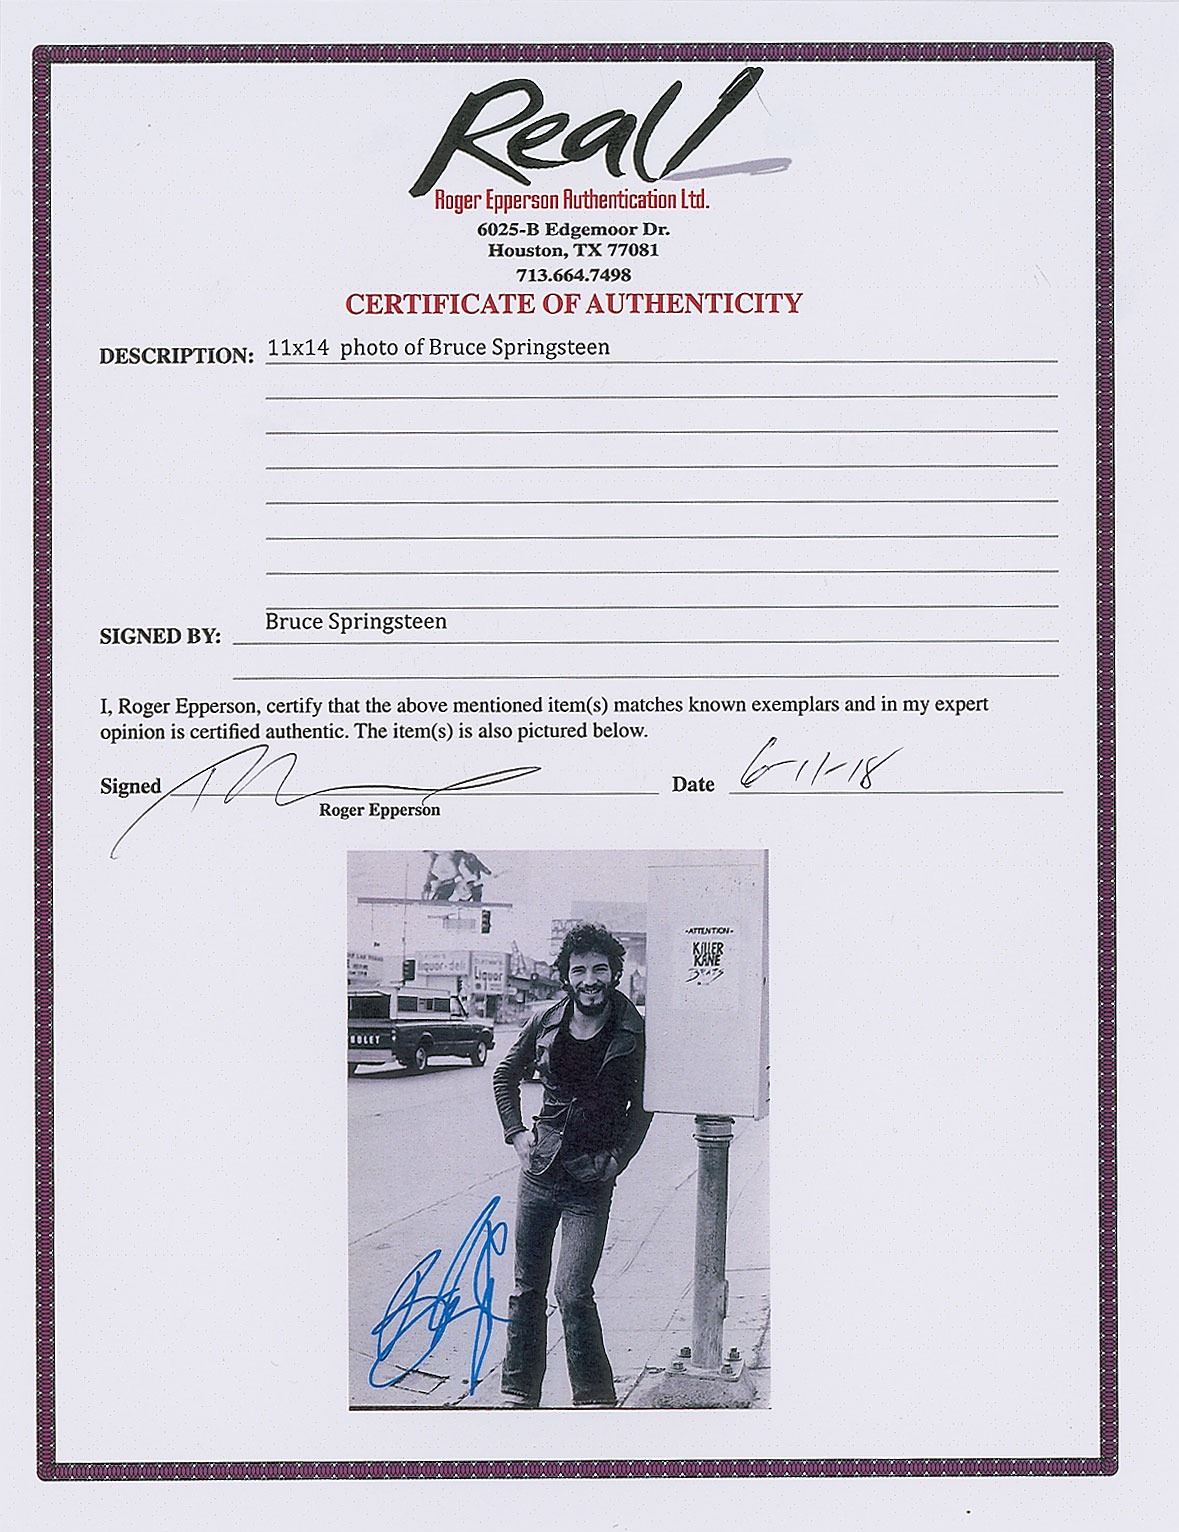 Real!
Roger Epperson Authentication Ltd.
6025-B Edgemoor Dr.
Houston, TX 77081
713.664.7498
CERTIFICATE OF AUTHENTICITY
DESCRIPTION: 11x14 photo of Bruce Springsteen
SIGNED BY: Bruce Springsteen
I, Roger Epperson, certify that the above mentioned item(s) matches known exemplars and in my expert
opinion is certified authentic. The item(s) is also pictured below.
Signed Date 6-11-18
Roger Epperson
-ATTENTION-
KILLER
KANE
liquor-deli
Liquor
OLET